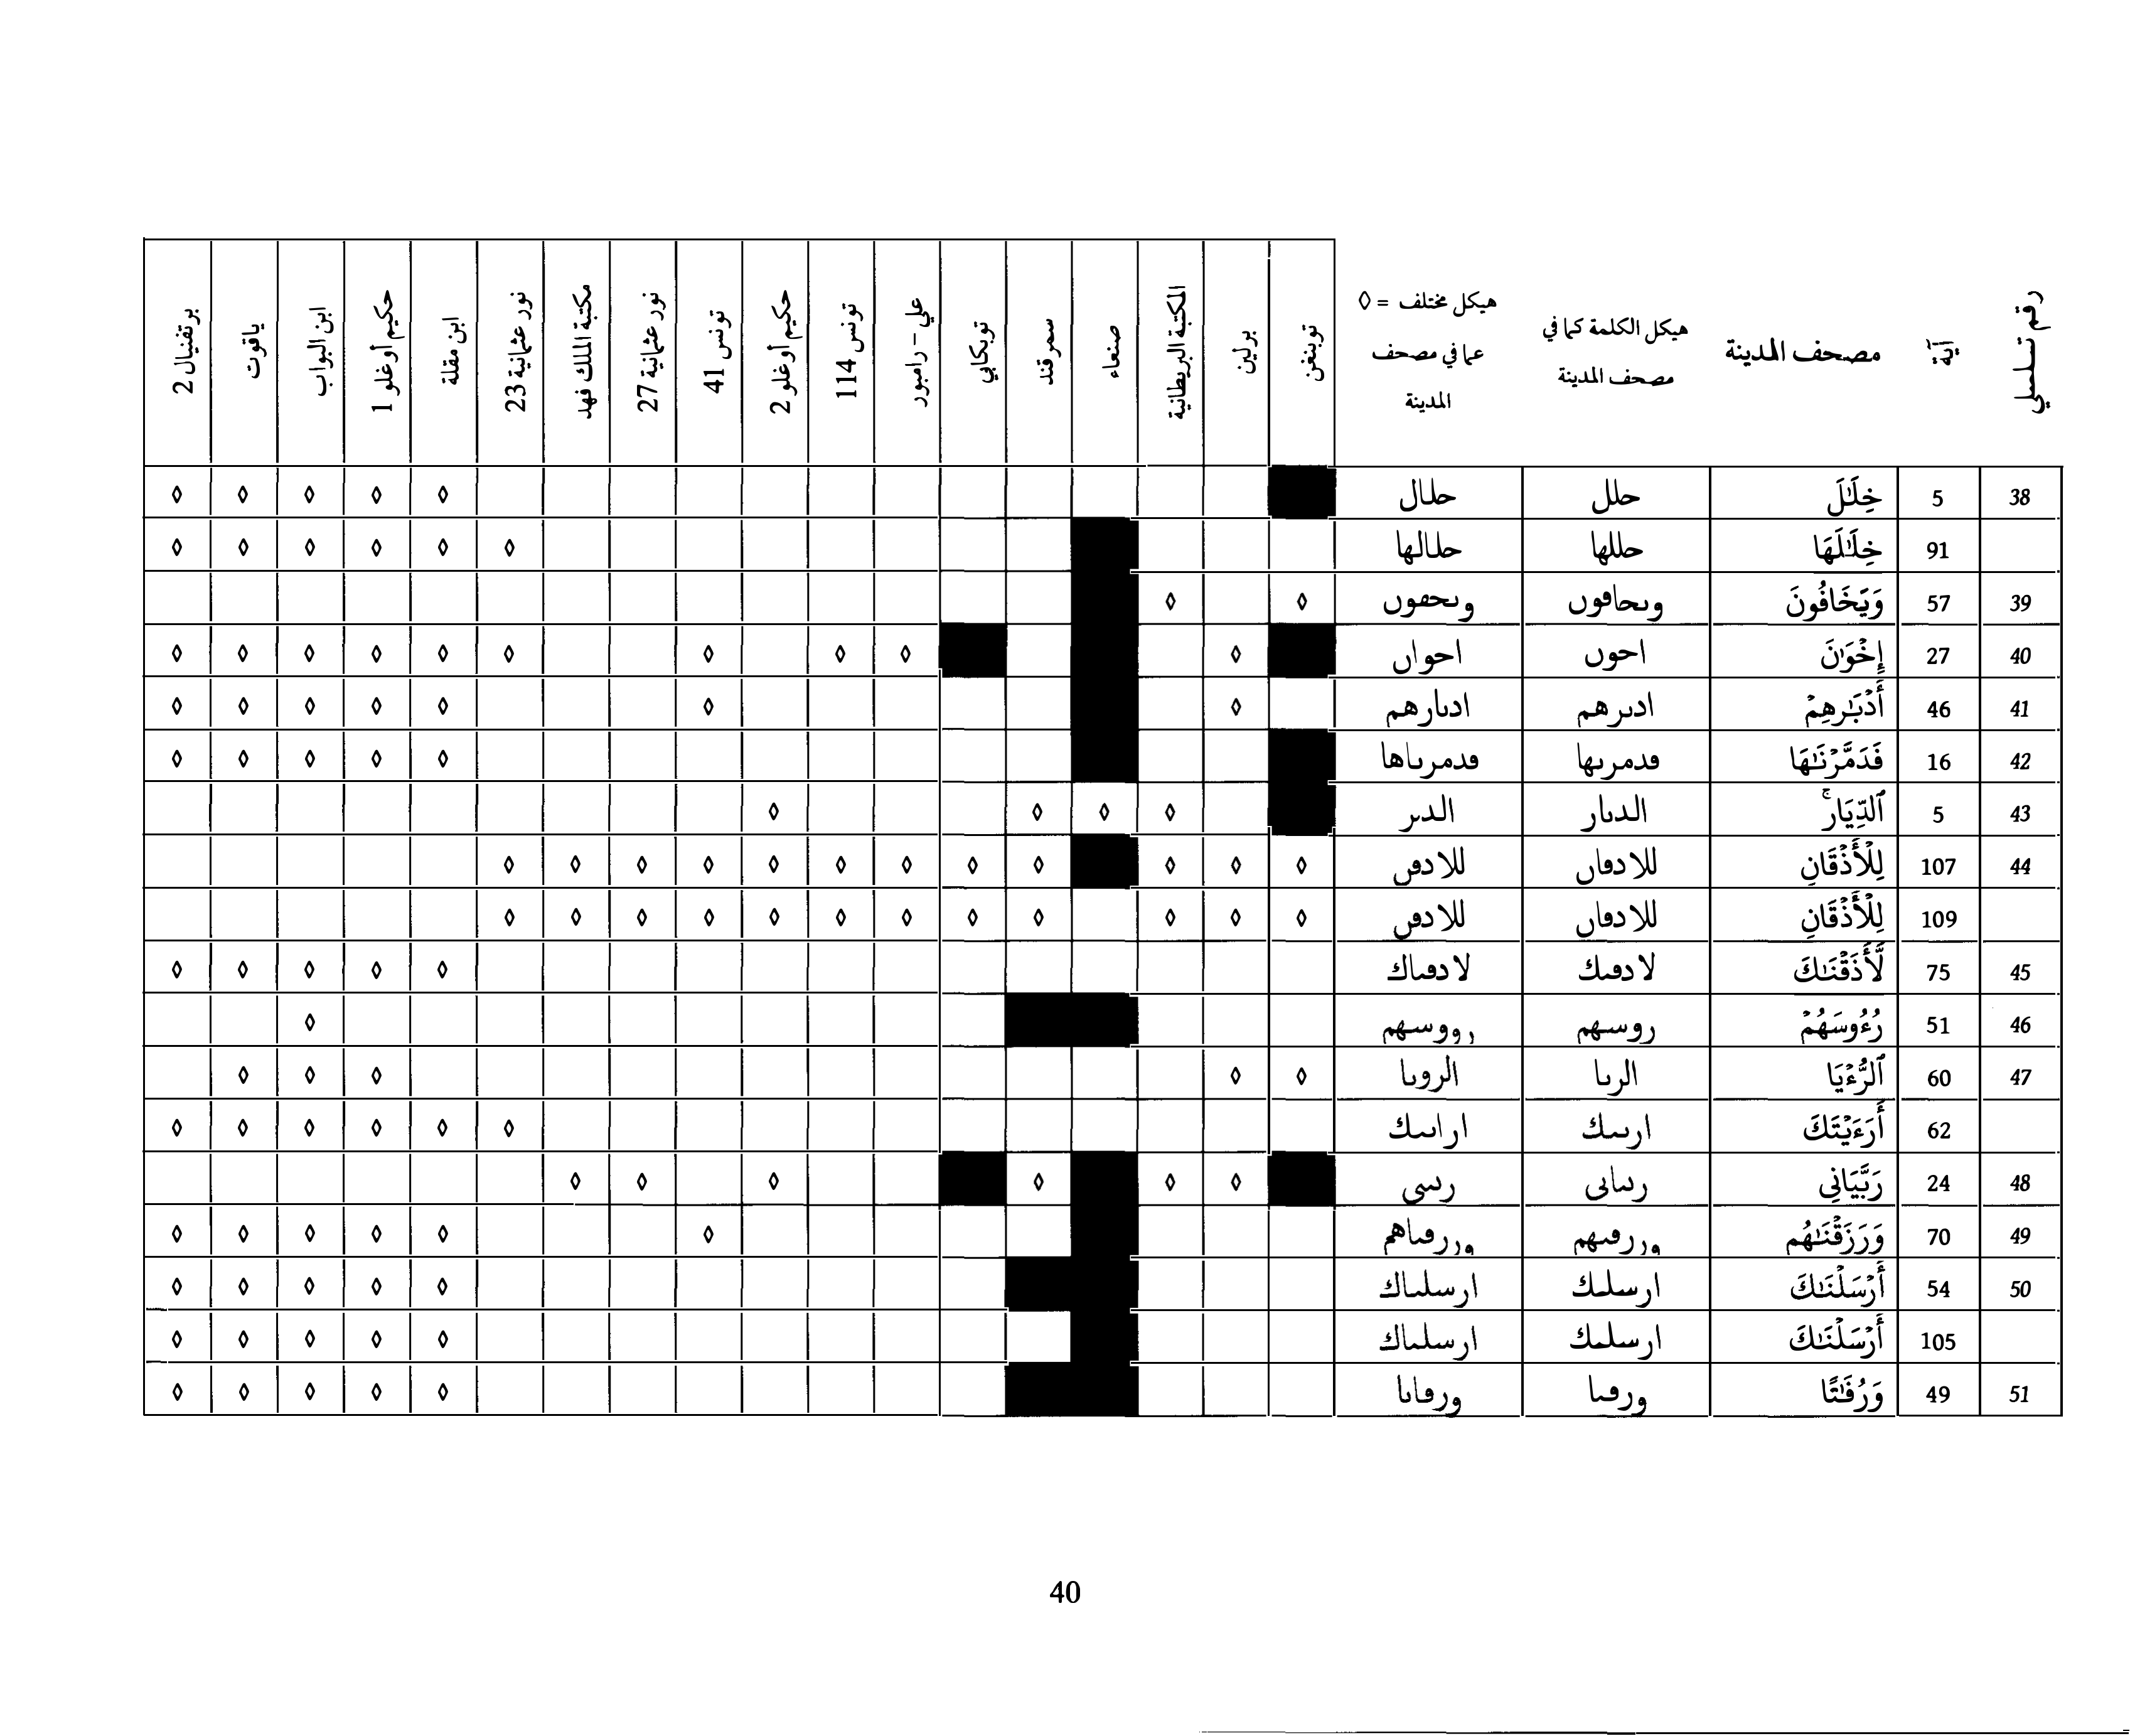 رقم تسلسلي
آية
مصحف المدينة
هيكل الكلمة كما في
مصحف المدينة
هيكل مختلف = ◊
عما في مصحف
المدينة
توبنغن
برلين
المكتبة البريطانية
صنعاء
سمرقند
توبكابي
علي - رامبور
تونس 114
حكيم أوغلو 2
تونس 41
نور عثمانية 27
مكتبة الملك فهد
نور عثمانية 23
ابن مقلة
حكيم أوغلو 1
ابن البواب
ياقوت
برتفنيال 2
38 5 خِلَٰلَ حلل حلال ◊ ◊ ◊ ◊ ◊
91 خِلَٰلَهَا حللها حلالها ◊ ◊ ◊ ◊ ◊ ◊
39 57 وَيَخَافُونَ وىحافوں وىحفوں ◊ ◊
40 27 إِخْوَٰنَ احوں احواں ◊ ◊ ◊ ◊ ◊ ◊ ◊ ◊ ◊ ◊
41 46 أَدْبَٰرِهِمْ ادىرهم ادىارهم ◊ ◊ ◊ ◊ ◊ ◊ ◊
42 16 فَدَمَّرْنَٰهَا ڡدمرىها ڡدمرىاها ◊ ◊ ◊ ◊ ◊
43 5 ٱلدِّيَارِۚ الدىار الدىر ◊ ◊ ◊ ◊
44 107 لِلْأَذْقَانِ للادڡاں للادڡں ◊ ◊ ◊ ◊ ◊ ◊ ◊ ◊ ◊ ◊ ◊ ◊
109 لِلْأَذْقَانِ للادڡاں للادڡں ◊ ◊ ◊ ◊ ◊ ◊ ◊ ◊ ◊ ◊ ◊ ◊
45 75 لَّأَذَقْنَٰكَ لادڡىك لادڡىاك ◊ ◊ ◊ ◊ ◊
46 51 رُءُوسَهُمْ روسهم رووسهم ◊
47 60 ٱلرُّءْيَا الرىا الروىا ◊ ◊ ◊ ◊ ◊
62 أَرَءَيْتَكَ ارىىك اراىىك ◊ ◊ ◊ ◊ ◊ ◊
48 24 رَبَّيَانِى رىىاىى رىىىى ◊ ◊ ◊ ◊ ◊ ◊
49 70 وَرَزَقْنَٰهُم وررڡىهم وررڡىاهم ◊ ◊ ◊ ◊ ◊ ◊
50 54 أَرْسَلْنَٰكَ ارسلىك ارسلىاك ◊ ◊ ◊ ◊ ◊
105 أَرْسَلْنَٰكَ ارسلىك ارسلىاك ◊ ◊ ◊ ◊ ◊
51 49 وَرُفَٰتًا ورڡىا ورڡاىا ◊ ◊ ◊ ◊ ◊
40